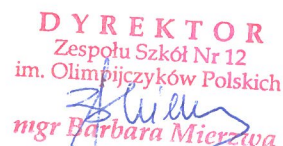 DYREKTOR
Zespołu Szkół Nr 12
im. Olimpijczyków Polskich
mgr Barbara Mierzwa